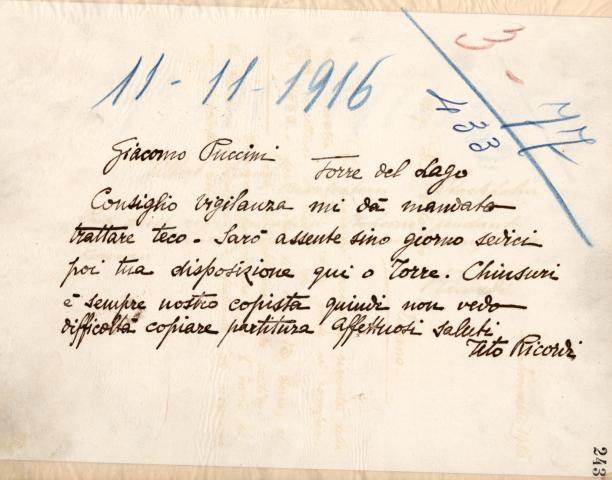 11-11-1916
3.
433
Giacomo Puccini Torre del Lago
Consiglio vigilanza mi dà mandato
trattare teco - Sarò assente sino giorno sedici
poi tua disposizione qui o Torre. Chinsuri
è sempre nostro copista quindi non vedo
difficoltà copiare partitura Affettuosi saluti
Tito Ricordi
243